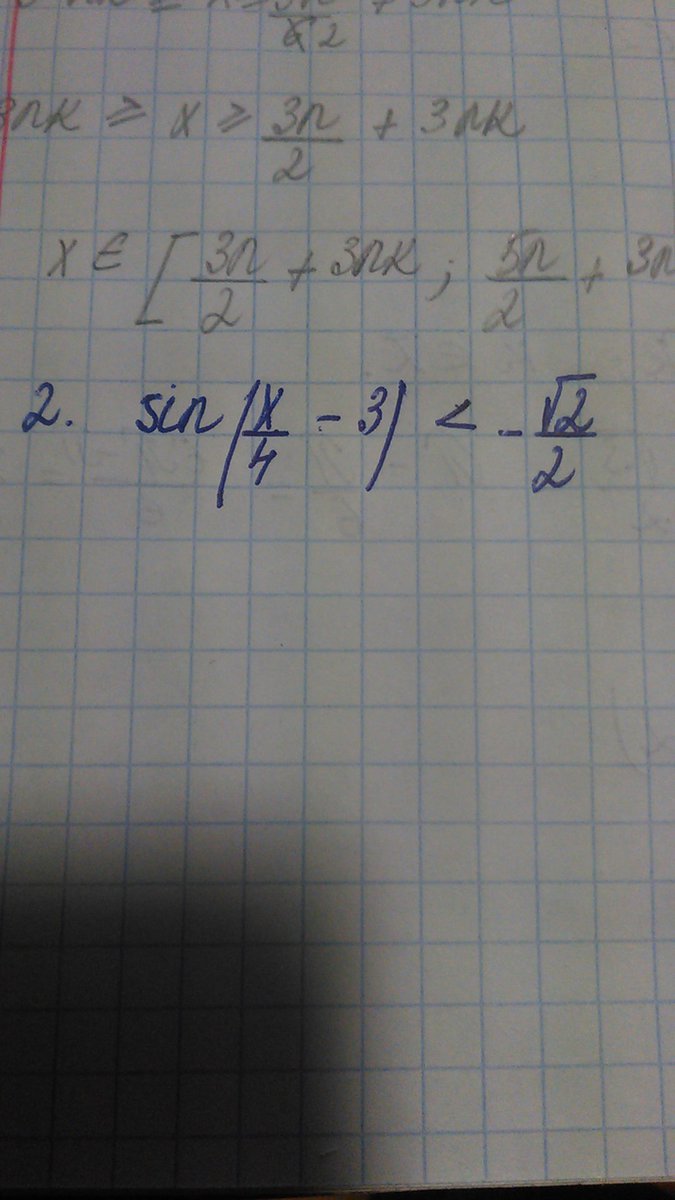 3πk ≥ x ≥ 3π/2 + 3πk
x ∈ [3π/2 + 3πk; 5π/2 + 3π
2. sin(x/4 - 3) < -√2/2